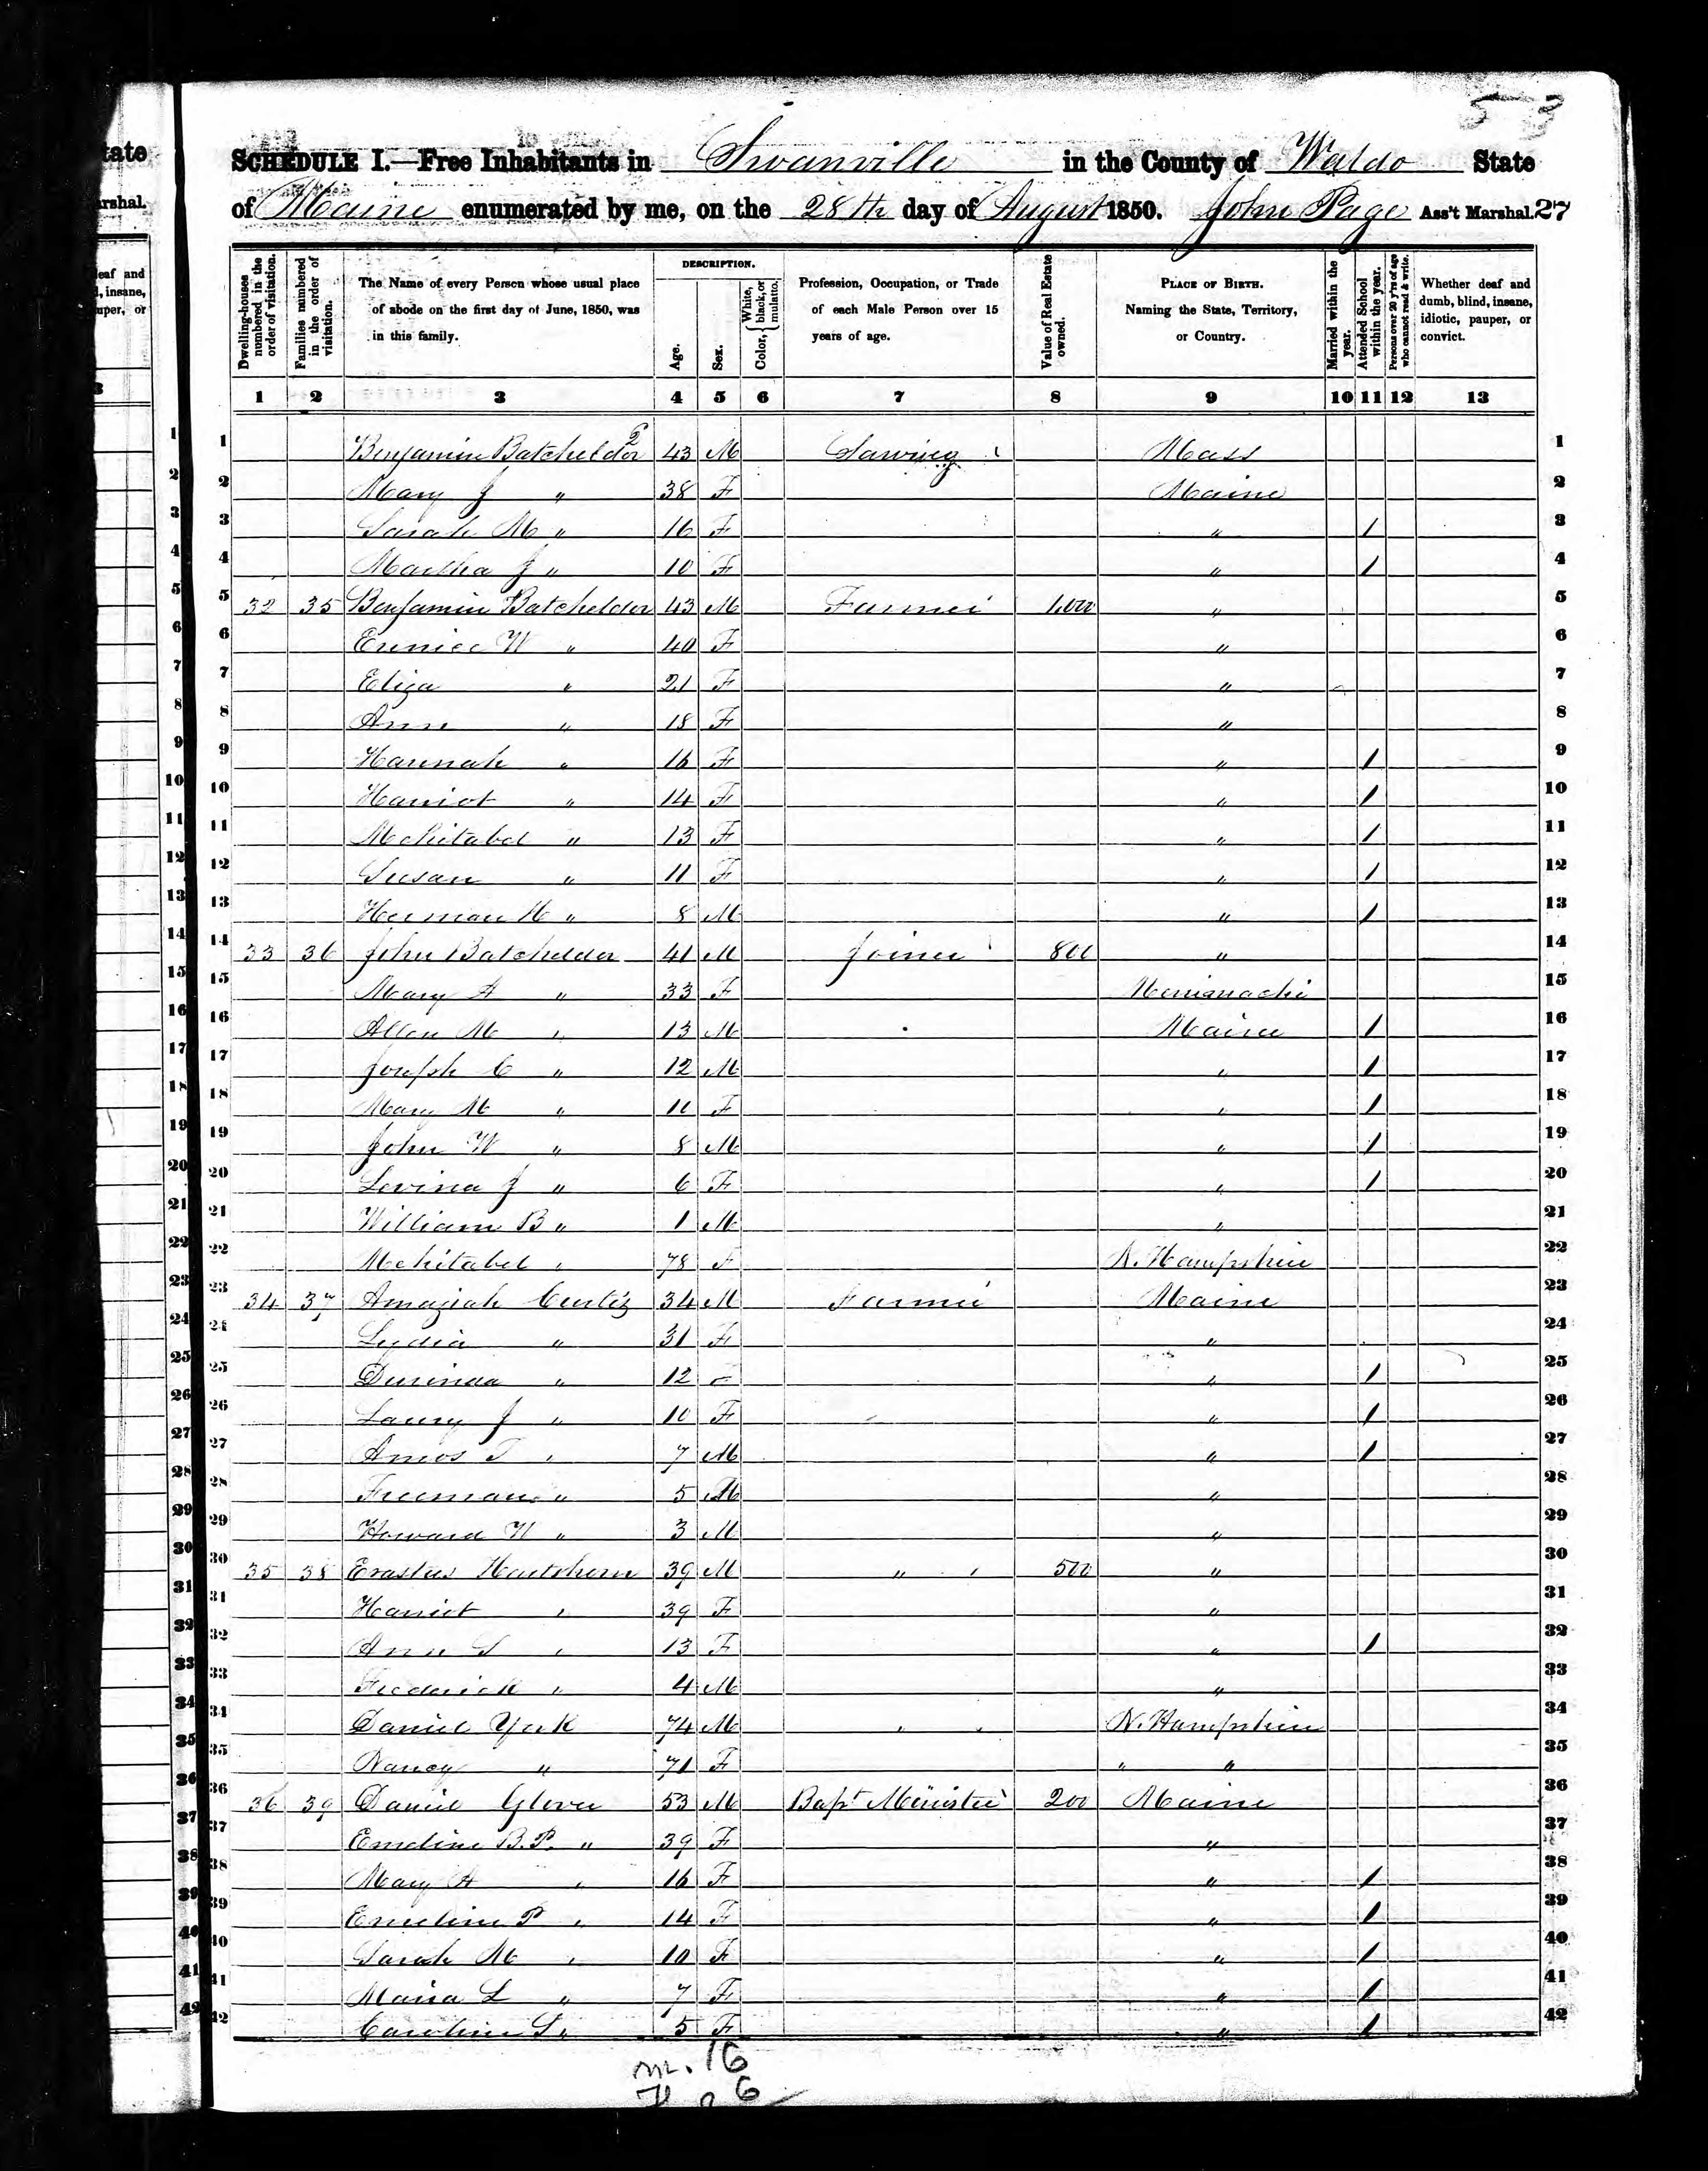 53
SCHEDULE I.—Free Inhabitants in Swanville in the County of Waldo State
of Maine enumerated by me, on the 28th day of August 1850. John Page Ass't Marshal. 27
Dwelling-houses numbered in the order of visitation.
Families numbered in the order of visitation.
The Name of every Person whose usual place of abode on the first day of June, 1850, was in this family.
DESCRIPTION.
Age.
Sex.
Color, { White, black, or mulatto.
Profession, Occupation, or Trade of each Male Person over 15 years of age.
Value of Real Estate owned.
PLACE OF BIRTH. Naming the State, Territory, or Country.
Married within the year.
Attended School within the year.
Persons over 20 y'rs of age who cannot read & write.
Whether deaf and dumb, blind, insane, idiotic, pauper, or convict.
1 2 3 4 5 6 7 8 9 10 11 12 13
1 Benjamin Batchelder 2d 43 M Mass 1
2 Mary J " 38 F Maine 2
3 Sarah M " 16 F " 1 3
4 Martha J " 10 F " 1 4
5 32 35 Benjamin Batchelder 43 M Farmer 1,000 " 5
6 Eunice W " 40 F " 6
7 Eliza " 21 F " 7
8 Ann " 18 F " 8
9 Hannah " 16 F " 1 9
10 Harriet " 14 F " 1 10
11 Mehitabel " 13 F " 1 11
12 Susan " 11 F " 1 12
13 Herman H " 8 M " 1 13
14 33 36 John Batchelder 41 M Joiner 800 " 14
15 Mary A " 33 F Mirimachi 15
16 Allen M " 13 M Maine 1 16
17 Joseph C " 12 M " 1 17
18 Mary M " 11 F " 1 18
19 John W " 8 M " 1 19
20 Levina J " 6 F " 1 20
21 William B " 1 M " 21
22 Mehitabel " 78 F N. Hampshire 22
23 34 37 Amaziah Curtiz 34 M Farmer Maine 23
24 Lydia " 31 F " 24
25 Durinda " 12 F " 1 25
26 Laury J " 10 F " 1 26
27 Amos T " 7 M " 1 27
28 Freeman " 5 M " 28
29 Howard W " 3 M " 29
30 35 38 Erastus 39 M " 500 " 30
31 Harriet " 39 F " 31
32 Ann S " 13 F " 1 32
33 Frederick " 4 M " 33
34 Daniel York 74 M " N. Hampshire 34
35 Nancy " 71 F " " 35
36 36 39 Daniel Glover 53 M Bapt Minister 200 Maine 36
37 Emeline B. P. " 39 F " 37
38 Mary A " 16 F " 1 38
39 Emeline P " 14 F " 1 39
40 Sarah M " 10 F " 1 40
41 Maria L " 7 F " 1 41
42 Caroline S " 5 F " 1 42
m. 16